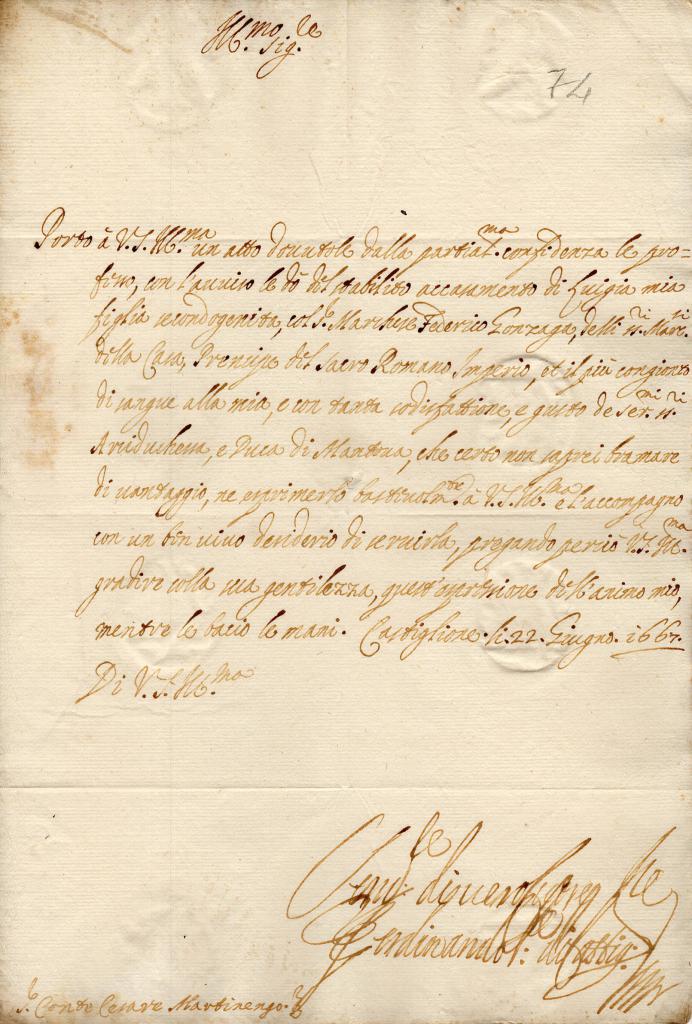 Ill.mo Sig.re
74
Porto à V.S. Ill.ma un atto douutole dalla partial.ma confidenza le pro=
fesso, con l'auuiso le dò del stabilito accasamento di Luigia mia
figlia secondogenita, col S.r Marchese Federico Gonzaga, delli ss.ri Mar.si
della Casa, Prencipe del Sacro Romano Imperio, et il più congionto
di sangue alla mia, e con tanta sodisfattione, e gusto de Ser.mi ss.ri
Arciduchessa, e Duca di Mantoua, che certo non saprei bramare
di uantaggio, ne esprimerlo basteuolm.te à V.S. Ill.ma e l'accompagno
con un ben uiuo desiderio di seruirla, pregando perciò V.S. Ill.ma
gradire colla sua gentilezza, quest'espressione dell'animo mio,
mentre le bacio le mani. Castiglione. li. 22. Giugno. 1667.
Di V.S. Ill.ma
Ferdinando P.e di Castig.ne
S.r Conte Cesare Martinengo.